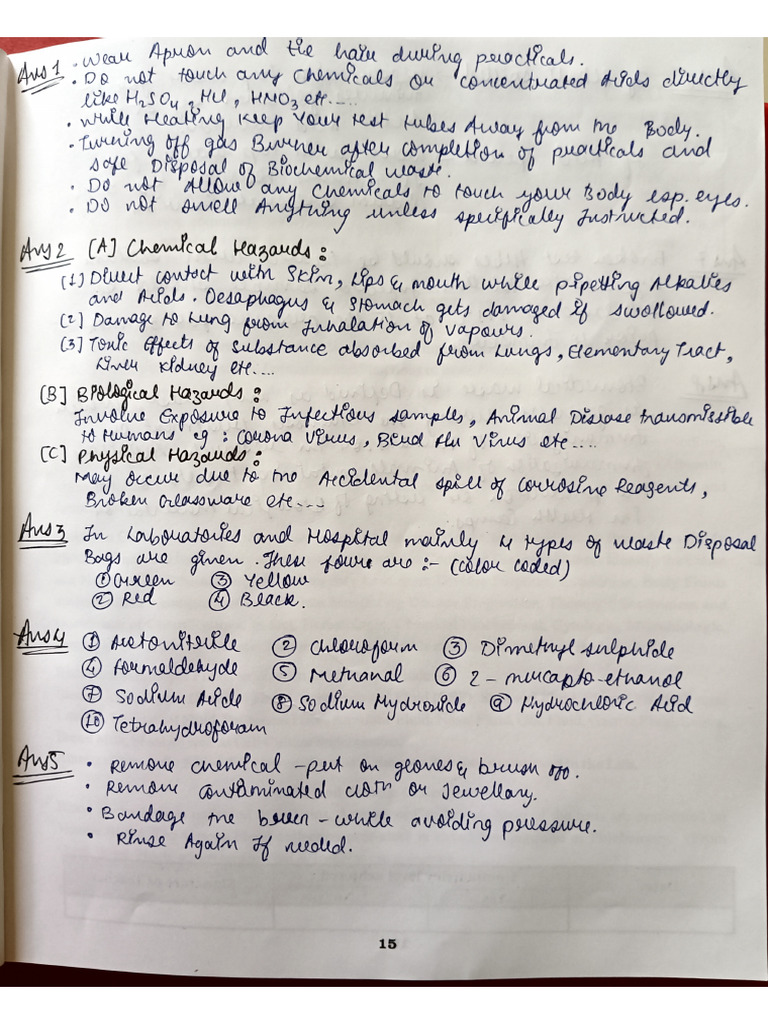 Ans 1 • Wear Apron and tie hair during practicals.
• Do not touch any chemicals or concentrated Acids directly
like H₂SO₄, HCl, HNO₃ etc.....
• While Heating Keep Your test tubes Away from the Body.
• Turning off gas Burner after completion of practicals and
safe Disposal of Biochemical waste.
• Do not Allow any Chemicals to touch your Body esp. eyes.
• Do not smell Anything unless specifically Instructed.
Ans 2 [A] Chemical Hazards :
(1) Direct contact with Skin, Lips & mouth while pipetting Alkalies
and Acids. Oesaphagus & Stomach gets damaged if swallowed.
(2) Damage to Lung from Inhalation of Vapours.
(3) Toxic Effects of Substance absorbed from Lungs, Elementary Tract,
Liver Kidney etc....
[B] Biological Hazards :
Involve Exposure to Infectious samples, Animal Disease transmissible
to Humans eg : Corona Virus, Bird Flu Virus etc....
[C] Physical Hazards :
May occur due to the Accidental spill of Corrosive Reagents,
Broken Glassware etc....
Ans 3 In Laboratories and Hospital mainly 4 types of waste Disposal
Bags are given. These foure are :- (color coded)
① Green ③ Yellow
② Red ④ Black.
Ans 4 ① Acetonitrile ② Chloroform ③ Dimethyl sulphide
④ Formaldehyde ⑤ Methanal ⑥ 2 - mercapto-ethanol
⑦ Sodium Azide ⑧ Sodium Hydroxide ⑨ Hydrochloric Acid
⑩ Tetrahydroforam
Ans 5 • Remove chemical - put on gloves & brush off.
• Remove contaminated cloth or Jewellary.
• Bandage the burn - while avoiding pressure.
• Rinse Again If needed.
15